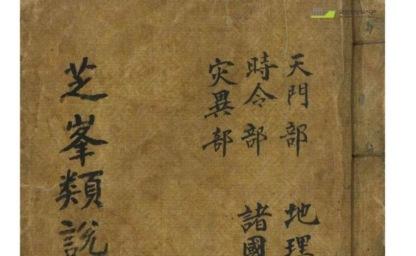 天門部 地理
時令部 諸國
灾異部
芝峯類說